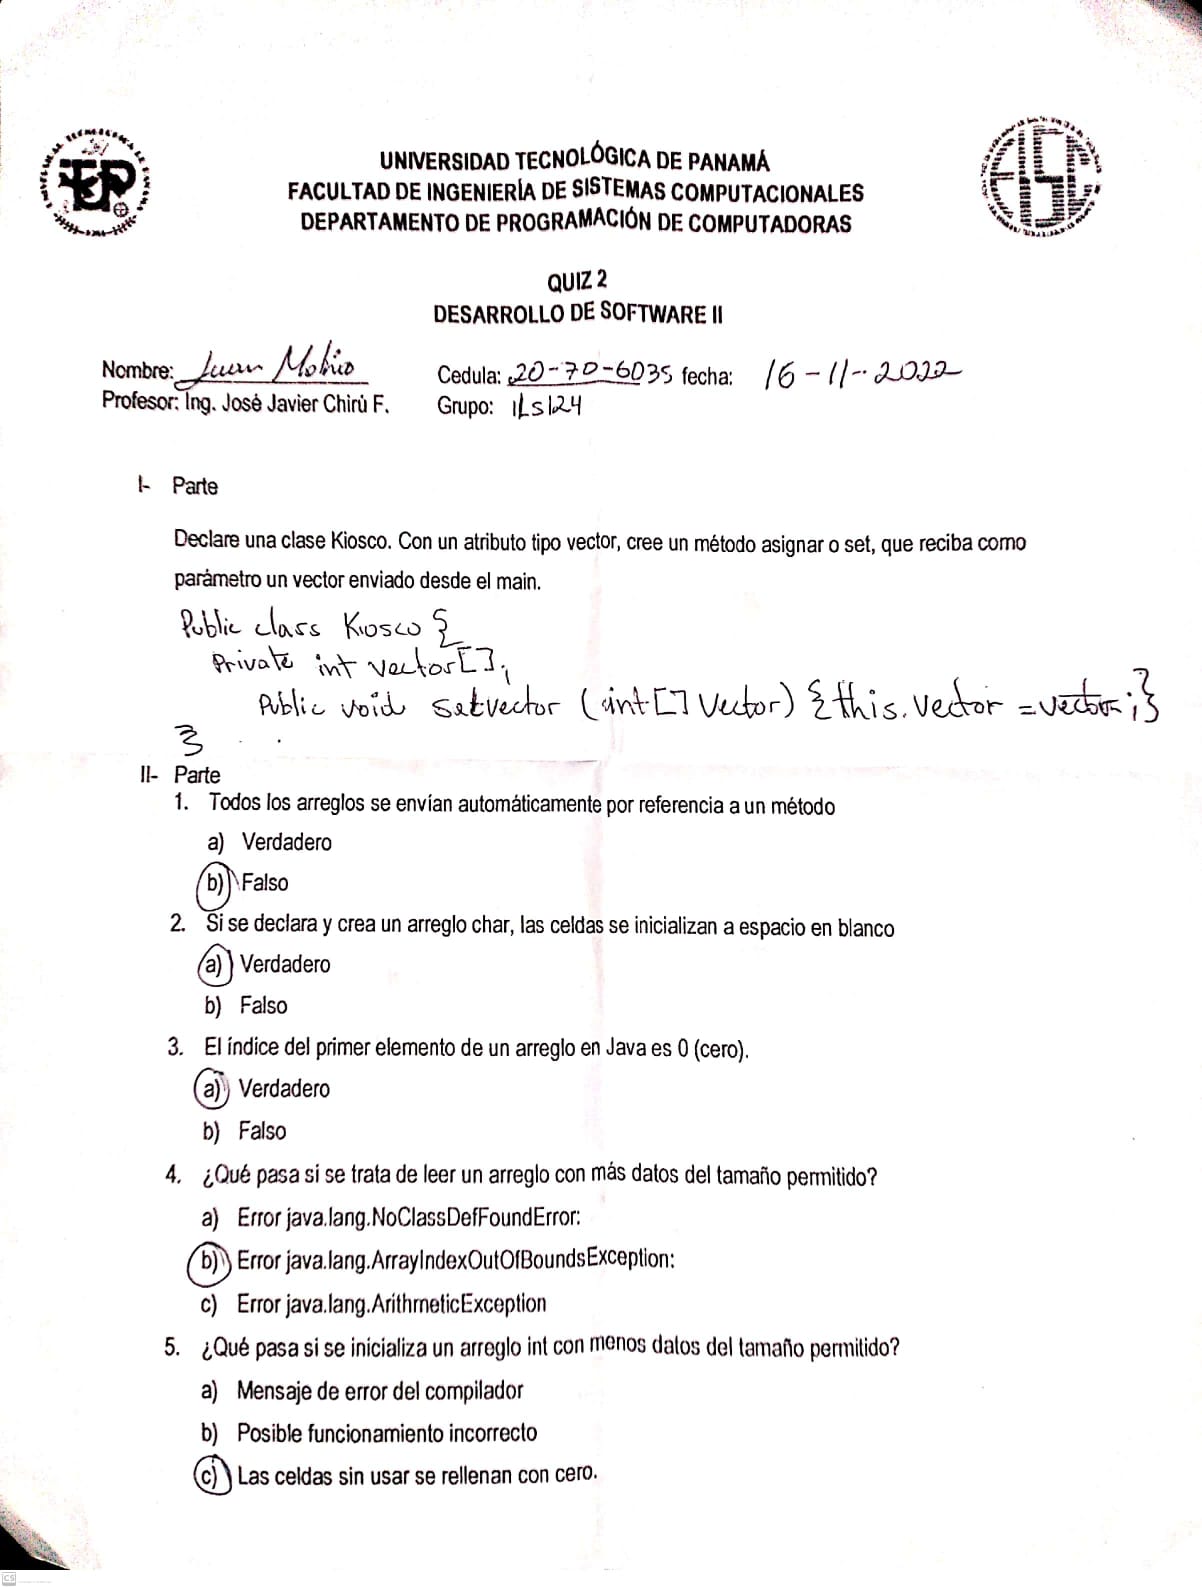 UNIVERSIDAD TECNOLÓGICA DE PANAMÁ
FACULTAD DE INGENIERÍA DE SISTEMAS COMPUTACIONALES
DEPARTAMENTO DE PROGRAMACIÓN DE COMPUTADORAS
QUIZ 2
DESARROLLO DE SOFTWARE II
Nombre: Juan Molino Cedula: 20-70-6035 fecha: 16-11-2022
Profesor: Ing. José Javier Chirú F. Grupo: 1LS124
I- Parte
Declare una clase Kiosco. Con un atributo tipo vector, cree un método asignar o set, que reciba como
parámetro un vector enviado desde el main.
Public class Kiosco {
Private int vector[];
Public void setvector (int[] Vector) {this.vector = vector;}
}
II- Parte
1. Todos los arreglos se envían automáticamente por referencia a un método
a) Verdadero
b) Falso
2. Si se declara y crea un arreglo char, las celdas se inicializan a espacio en blanco
a) Verdadero
b) Falso
3. El índice del primer elemento de un arreglo en Java es 0 (cero).
a) Verdadero
b) Falso
4. ¿Qué pasa si se trata de leer un arreglo con más datos del tamaño permitido?
a) Error java.lang.NoClassDefFoundError:
b) Error java.lang.ArrayIndexOutOfBoundsException:
c) Error java.lang.ArithmeticException
5. ¿Qué pasa si se inicializa un arreglo int con menos datos del tamaño permitido?
a) Mensaje de error del compilador
b) Posible funcionamiento incorrecto
c) Las celdas sin usar se rellenan con cero.
CS